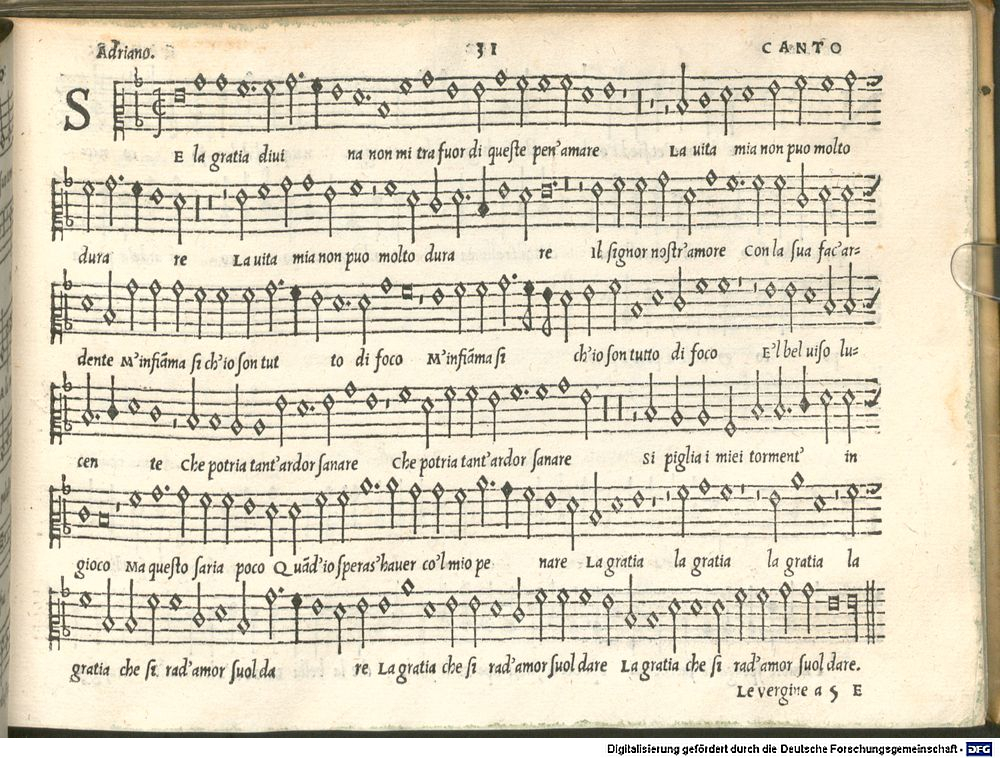 Adriano. 31 CANTO
S E la gratia diui na non mi tra fuor di queste pen'amare La uita mia non puo molto
dura re La uita mia non puo molto dura re Il signor nostr'amore Con la sua fac'ar-
dente M'infiāma si ch'io son tut to di foco M'infiāma si ch'io son tutto di foco E'l bel uiso lu-
cen te Che potria tant'ardor sanare Che potria tant'ardor sanare si piglia i miei torment' in
gioco Ma questo saria poco Quād'io speras'hauer co'l mio pe nare La gratia la gratia la gratia la
gratia che si rad'amor suol da re La gratia che si rad'amor suol dare La gratia che si rad'amor suol dare.
Le vergine a 5 E
Digitalisierung gefördert durch die Deutsche Forschungsgemeinschaft - DFG